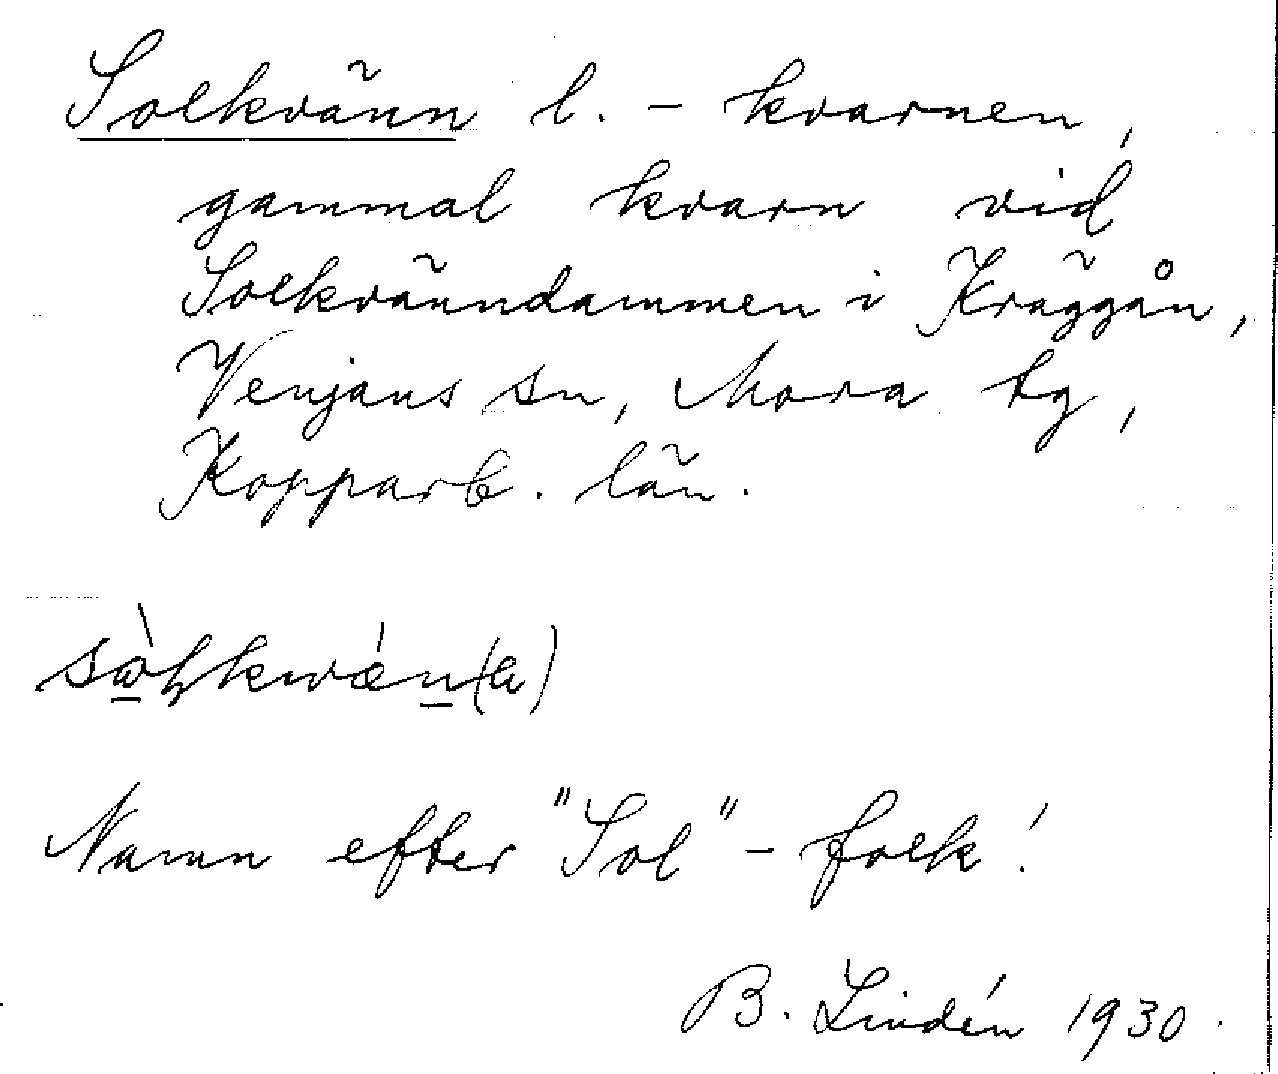 Solkvänn l. - kvarnen,
gammal kvarn vid
Solkvänndammen i Kräggån,
Venjans sn, Mora tg,
Kopparb. län.
Namn efter "Sol" - folk!
B. Lindén 1930.